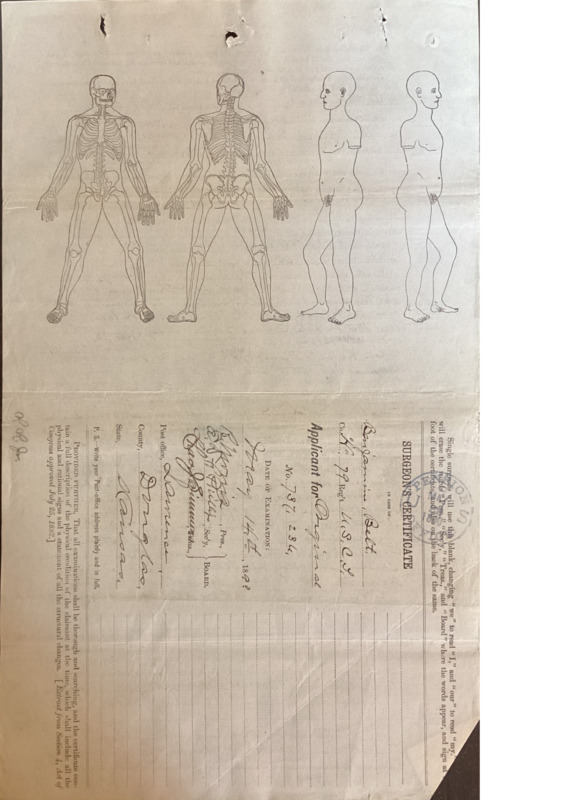 Single surgeon will use this blank, changing "we" to read "I," and "our" to read "my,"
will erase the words "Pres.," "Sec'y," "Treas.," and "Board" where the words appear, and sign at
foot of the certificate and on the back of the same.
SURGEON'S CERTIFICATE
IN CASE OF
Benjamin Belt
Co. K, 79 Reg't U.S.C.I.
Applicant for Original
No. 787,234,
DATE OF EXAMINATION:
May 14th, 1898
Pres.,
Sec'y,
BOARD.
Post office, Lawrence,
County, Douglas,
State, Kansas,
P. S.—Write your Post-office address plainly and in full.
PROVIDED FURTHER, That all examinations shall be thorough and searching, and the certificate con-
tain a full description of the physical condition of the claimant at the time, which shall include all the
physical and rational signs and a statement of all the structural changes. [Extract from Section 4, Act of
Congress approved July 25, 1882.]